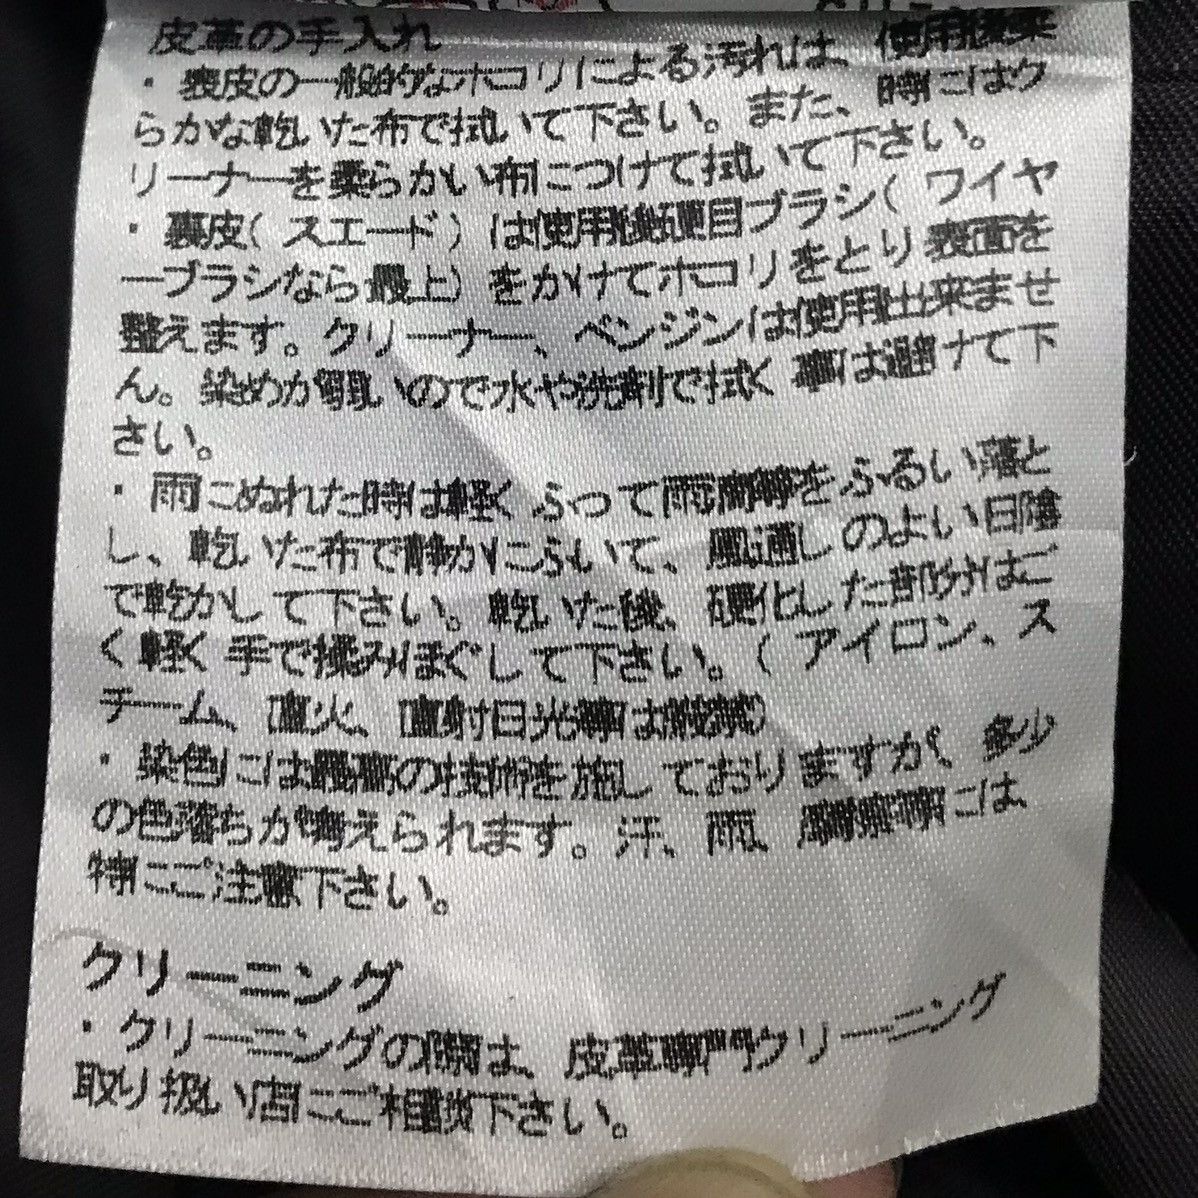 皮革の手入れ
・表皮の一般的なホコリによる汚れは、使用後柔
らかな乾いた布で拭いて下さい。また、時にはク
リーナーを柔らかい布につけて拭いて下さい。
・裏皮(スエード)は使用後硬目ブラシ(ワイヤ
ーブラシなら最上)をかけてホコリをとり表面を
整えます。クリーナー、ベンジンは使用出来ませ
ん。染めが弱いので水や洗剤で拭く事は避けて下
さい。
・雨にぬれた時は軽くふって雨滴等をふるい落と
し、乾いた布で静かにふいて、風通しのよい日陰
で乾かして下さい。乾いた後、硬化した部分はご
く軽く手で揉みほぐして下さい。(アイロン、ス
チーム、直火、直射日光等は厳禁)
・染色には最高の技術を施しておりますが、多少
の色落ちが考えられます。汗、雨、摩擦等には
特にご注意下さい。
クリーニング
・クリーニングの際は、皮革専門クリーニング
取り扱い店にご相談下さい。